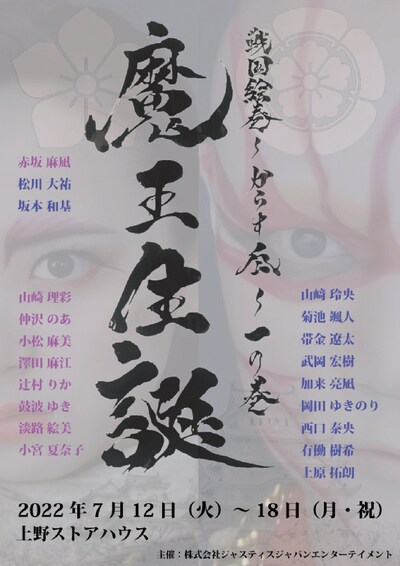 戦国絵奏～からす凪～一の巻
魔王生誕
赤坂 麻凪
松川 大祐
坂本 和基
山崎 理彩
仲沢 のあ
小松 麻美
澤田 麻江
辻村 りか
鼓波 ゆき
淡路 絵美
小宮 夏奈子
山﨑 玲央
菊池 颯人
帯金 遼太
武岡 宏樹
加来 亮凪
岡田 ゆきのり
西口 泰央
有働 樹希
上原 拓朗
2022年7月12日（火）～18日（月・祝）
上野ストアハウス
主催：株式会社ジャスティスジャパンエンターテイメント